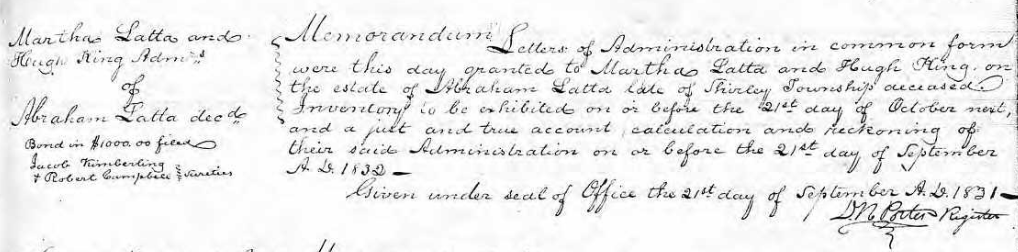 Martha Latta and
Hugh King Admrs
of
Abraham Latta decd
Bond in $1000.00 filed
Jacob Kimberling
& Robert Campbell Sureties
Memorandum Letters of Administration in common form
were this day granted to Martha Latta and Hugh King, on
the estate of Abraham Latta late of Shirley Township deceased.
Inventory to be exhibited on or before the 21st day of October next,
and a just and true account, calculation and reckoning of
their said Administration on or before the 21st day of September
A.D. 1832 —
Given under seal of Office the 21st day of September A.D. 1831 —
Register